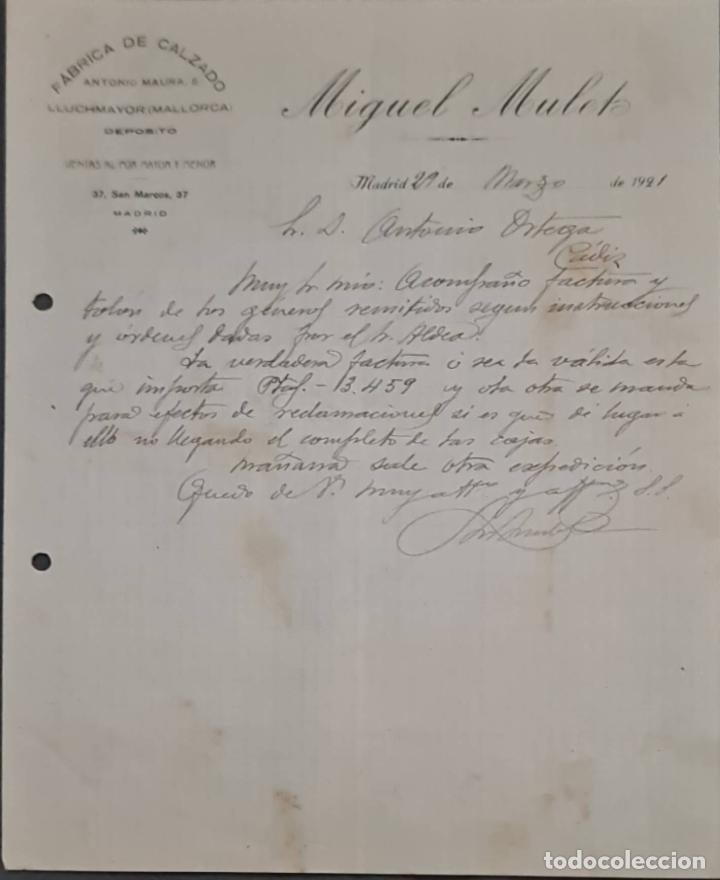 FÁBRICA DE CALZADO
ANTONIO MAURA, 6
LLUCHMAYOR (MALLORCA)
DEPÓSITO
VENTAS AL POR MAYOR Y MENOR
37, San Marcos, 37
MADRID
Miguel Mulet
Madrid 29 de Marzo de 1921
Sr. D. Antonio Ortega
Cádiz
Muy Sr mio: Acompaño factura y
talon de los géneros remitidos segun instrucciones
y órdenes dadas por el Sr. Aldea.
La verdadera factura ó sea la válida es la
que importa Ptas.- 13.459 y la otra se manda
para efectos de reclamaciones si es que dé lugar á
ello no llegando el completo de las cajas.
Mañana sale otra expedición.
Quedo de V. muy atto y affmo. S.S.
todocoleccion.net